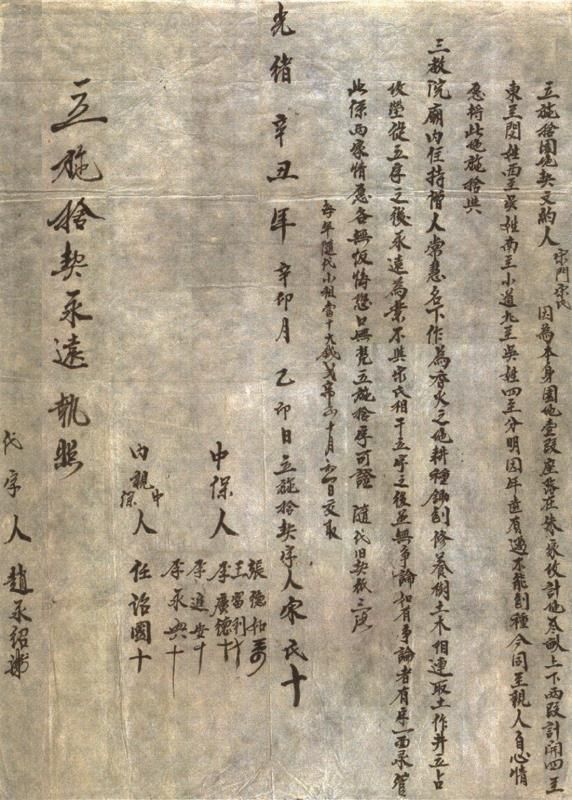 立施捨園地契文約人宋門宋氏因為本身園地壹段座落在 計地 畝上下兩段計開四至
東至閆姓西至吳姓南至小道北至吳姓四至分明因年遠有 不能創種今同至親人自心情
愿將此地施捨與
三教院廟內住持僧人常慧名下作為香火之地耕種鋤創修養樹土木相連取土作井立占
墳塋從立字之後永遠為業不與宋氏相干立字之後並無爭論如有爭論者有字一面承管
此係兩家情愿各無反悔恐口無憑立施捨字可證 隨代旧契紙三張
每年隨代小租當十大錢 十月 日交取
光緒辛丑年辛卯月乙卯日立施捨契字人宋氏十
中保人
張德和
王富利十
李廣德十
李進安十
李永興十
內親中保人 任治國十
立施捨契永遠執照
代字人 趙永紹